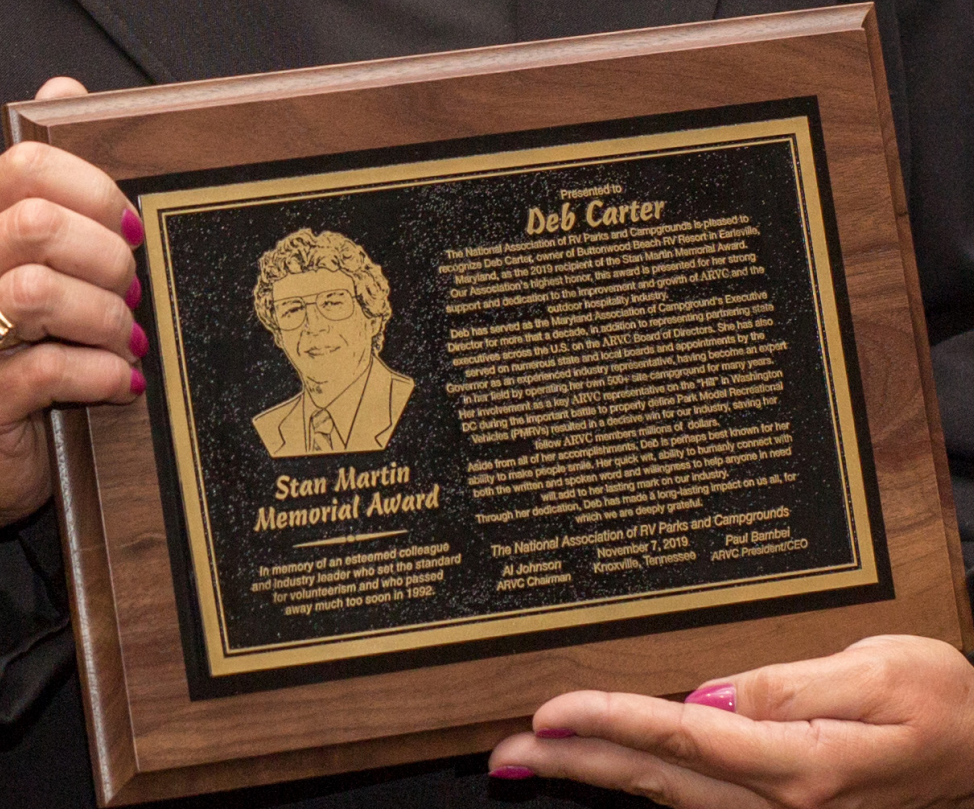 Stan Martin
Memorial Award
In memory of an esteemed colleague
and industry leader who set the standard
for volunteerism and who passed
away much too soon in 1992.
Presented to
Deb Carter
The National Association of RV Parks and Campgrounds is pleased to
recognize Deb Carter, owner of Buttonwood Beach RV Resort in Earleville,
Maryland, as the 2019 recipient of the Stan Martin Memorial Award.
Our Association's highest honor, this award is presented for her strong
support and dedication to the improvement and growth of ARVC and the
outdoor hospitality industry.
Deb has served as the Maryland Association of Campground's Executive
Director for more that a decade, in addition to representing partnering state
executives across the U.S. on the ARVC Board of Directors. She has also
served on numerous state and local boards and appointments by the
Governor as an experienced industry representative, having become an expert
in her field by operating her own 500+ site campground for many years.
Her involvement as a key ARVC representative on the "Hill" in Washington
DC during the important battle to properly define Park Model Recreational
Vehicles (PMRVs) resulted in a decisive win for our industry, saving her
fellow ARVC members millions of dollars.
Aside from all of her accomplishments, Deb is perhaps best known for her
ability to make people smile. Her quick wit, ability to humanly connect with
both the written and spoken word and willingness to help anyone in need
will add to her lasting mark on our industry.
Through her dedication, Deb has made a long-lasting impact on us all, for
which we are deeply grateful.
The National Association of RV Parks and Campgrounds
November 7, 2019
Knoxville, Tennessee
Al Johnson
ARVC Chairman
Paul Bambei
ARVC President/CEO